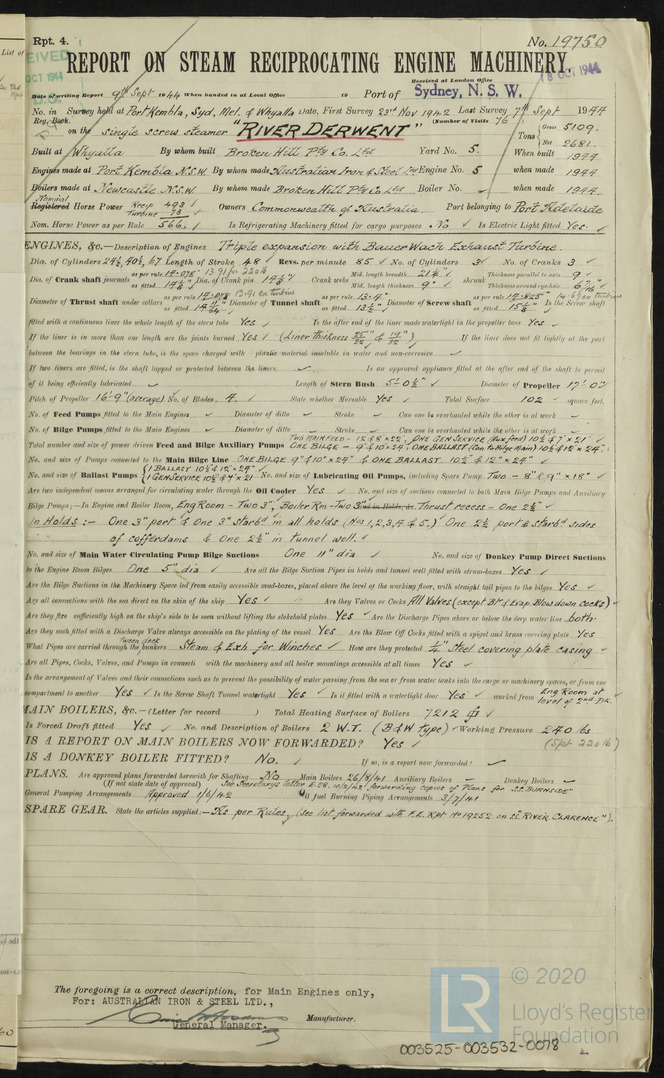 Rpt. 4.
No. 19750
REPORT ON STEAM RECIPROCATING ENGINE MACHINERY.
OCT 1944
18 OCT 1944
Received at London Office
Date of writing Report 9th Sept 1944 When handed in at Local Office 19 Port of Sydney, N. S. W.
No. in Survey held at Port Kembla, Syd, Mel. & Whyalla Date, First Survey 23rd Nov 1942 Last Survey 7th Sept 1944
Reg. Book. (Number of Visits 76)
on the single screw steamer "RIVER DERWENT" Tons Gross 5109. Net 2681.
Built at Whyalla By whom built Broken Hill Pty Co. Ltd Yard No. 5. When built 1944
Engines made at Port Kembla N.S.W. By whom made Australian Iron & Steel Engine No. 5 when made 1944
Boilers made at Newcastle N.S.W. By whom made Broken Hill Pty Co Ltd Boiler No. when made 1944.
Nominal
Registered Horse Power Recip 493 Turbine 73 Owners Commonwealth of Australia Port belonging to Port Adelaide
Nom. Horse Power as per Rule 566. Is Refrigerating Machinery fitted for cargo purposes No Is Electric Light fitted Yes.
ENGINES, &c.—Description of Engines Triple expansion with Bauer Wach Exhaust Turbine.
Dia. of Cylinders 24½, 40½, 67 Length of Stroke 48 Revs. per minute 85 No. of Cylinders 3 No. of Cranks 3
Dia. of Crank shaft journals as per rule 14.078 13.91 for 220 lb as fitted Dia. of Crank pin Crank webs Mid. length breadth Mid. length thickness 9" shrunk Thickness parallel to axis 9 Thickness around eyehole
Diameter of Thrust shaft under collars as per rule 14.078 as fitted Diameter of Tunnel shaft as per rule 13.4" as fitted 13½" Diameter of Screw shaft as per rule 14.825" as fitted Is the Screw shaft
fitted with a continuous liner the whole length of the stern tube Yes Is the after end of the liner made watertight in the propeller boss Yes
If the liner is in more than one length are the joints burned Yes (Liner thickness) If the liner does not fit tightly at the part
between the bearings in the stern tube, is the space charged with plastic material insoluble in water and non-corrosive
If two liners are fitted, is the shaft lapped or protected between the liners. Is an approved appliance fitted at the after end of the shaft to permit
of it being efficiently lubricated Length of Stern Bush 5'-0½" Diameter of Propeller 17'-0"
Pitch of Propeller 16'-9" (average) No. of Blades 4. State whether Moveable Yes Total Surface 102 square feet.
No. of Feed Pumps fitted to the Main Engines Diameter of ditto Stroke Can one be overhauled while the other is at work
No. of Bilge Pumps fitted to the Main Engines Diameter of ditto Stroke Can one be overhauled while the other is at work
Total number and size of power driven Feed and Bilge Auxiliary Pumps Two Main Feed - 12 & 8 x 22. One Gen Service (Aux feed) 10½ & 7 x 21" One Bilge - 9 & 10 x 24. One Ballast (Con. to Bilge Main) 10½ & 12 x 24"
No. and size of Pumps connected to the Main Bilge Line ONE BILGE 9" & 10" x 24" & ONE BALLAST 10½" & 12" x 24"
No. and size of Ballast Pumps 1 BALLAST 10½" & 12" x 24" 1 GEN SERVICE 10½ & 7 x 21 No. and size of Lubricating Oil Pumps, including Spare Pump Two - 8" & 9" x 18"
Are two independent means arranged for circulating water through the Oil Cooler Yes No. and size of suctions connected to both Main Bilge Pumps and Auxiliary
Bilge Pumps;—In Engine and Boiler Room Eng Room - Two 3", Boiler Rm - Two 3" and in Holds, &c. Thrust recess - One 2½"
in Holds :- One 3" port & One 3" starbd in all holds (Nos 1, 2, 3, 4 & 5.) One 2½ port & starbd sides
of cofferdams & One 2½" in tunnel well.
No. and size of Main Water Circulating Pump Bilge Suctions One 11" dia No. and size of Donkey Pump Direct Suctions
to the Engine Room Bilges One 5" dia Are all the Bilge Suction Pipes in holds and tunnel well fitted with strum-boxes Yes
Are the Bilge Suctions in the Machinery Space led from easily accessible mud-boxes, placed above the level of the working floor, with straight tail pipes to the bilges Yes
Are all connections with the sea direct on the skin of the ship Yes Are they Valves or Cocks All Valves (except Blr & Evap. Blow down cocks)
Are they fixed sufficiently high on the ship's side to be seen without lifting the stokehold plates Yes Are the Discharge Pipes above or below the deep water line both.
Are they each fitted with a Discharge Valve always accessible on the plating of the vessel Yes Are the Blow Off Cocks fitted with a spigot and brass covering plate Yes
What Pipes are carried through the bunkers Steam & Exh for Winches How are they protected ¼" Steel covering plate casing
Are all Pipes, Cocks, Valves, and Pumps in connection with the machinery and all boiler mountings accessible at all times Yes
Is the arrangement of Valves and their connections such as to prevent the possibility of water passing from the sea or from water tanks into the cargo or machinery spaces, or from one
compartment to another Yes Is the Screw Shaft Tunnel watertight Yes Is it fitted with a watertight door Yes worked from Eng Room at level of 2nd Dk.
MAIN BOILERS, &c.—(Letter for record ) Total Heating Surface of Boilers 7212
Is Forced Draft fitted Yes No. and Description of Boilers 2 W.T. (B&W Type) Working Pressure 240 lbs
IS A REPORT ON MAIN BOILERS NOW FORWARDED? Yes (Spt 220 lb)
IS A DONKEY BOILER FITTED? No. If so, is a report now forwarded?
PLANS. Are approved plans forwarded herewith for Shafting No Main Boilers 26/8/41 Auxiliary Boilers Donkey Boilers
(If not state date of approval) See Secretarys letter E.28. 10/2/42 forwarding copies of Plans for S.S. "BURNSIDE"
General Pumping Arrangements Approved 1/6/42 Oil fuel Burning Piping Arrangements 3/7/41
SPARE GEAR. State the articles supplied:—As per Rules, (See list forwarded with F.E. Rpt No 19252 on SS. RIVER CLARENCE").
The foregoing is a correct description, for Main Engines only,
For: AUSTRALIAN IRON & STEEL LTD.,
General Manager. Manufacturer.
© 2020
LR
Lloyd's Register
Foundation
003525-003532-0078